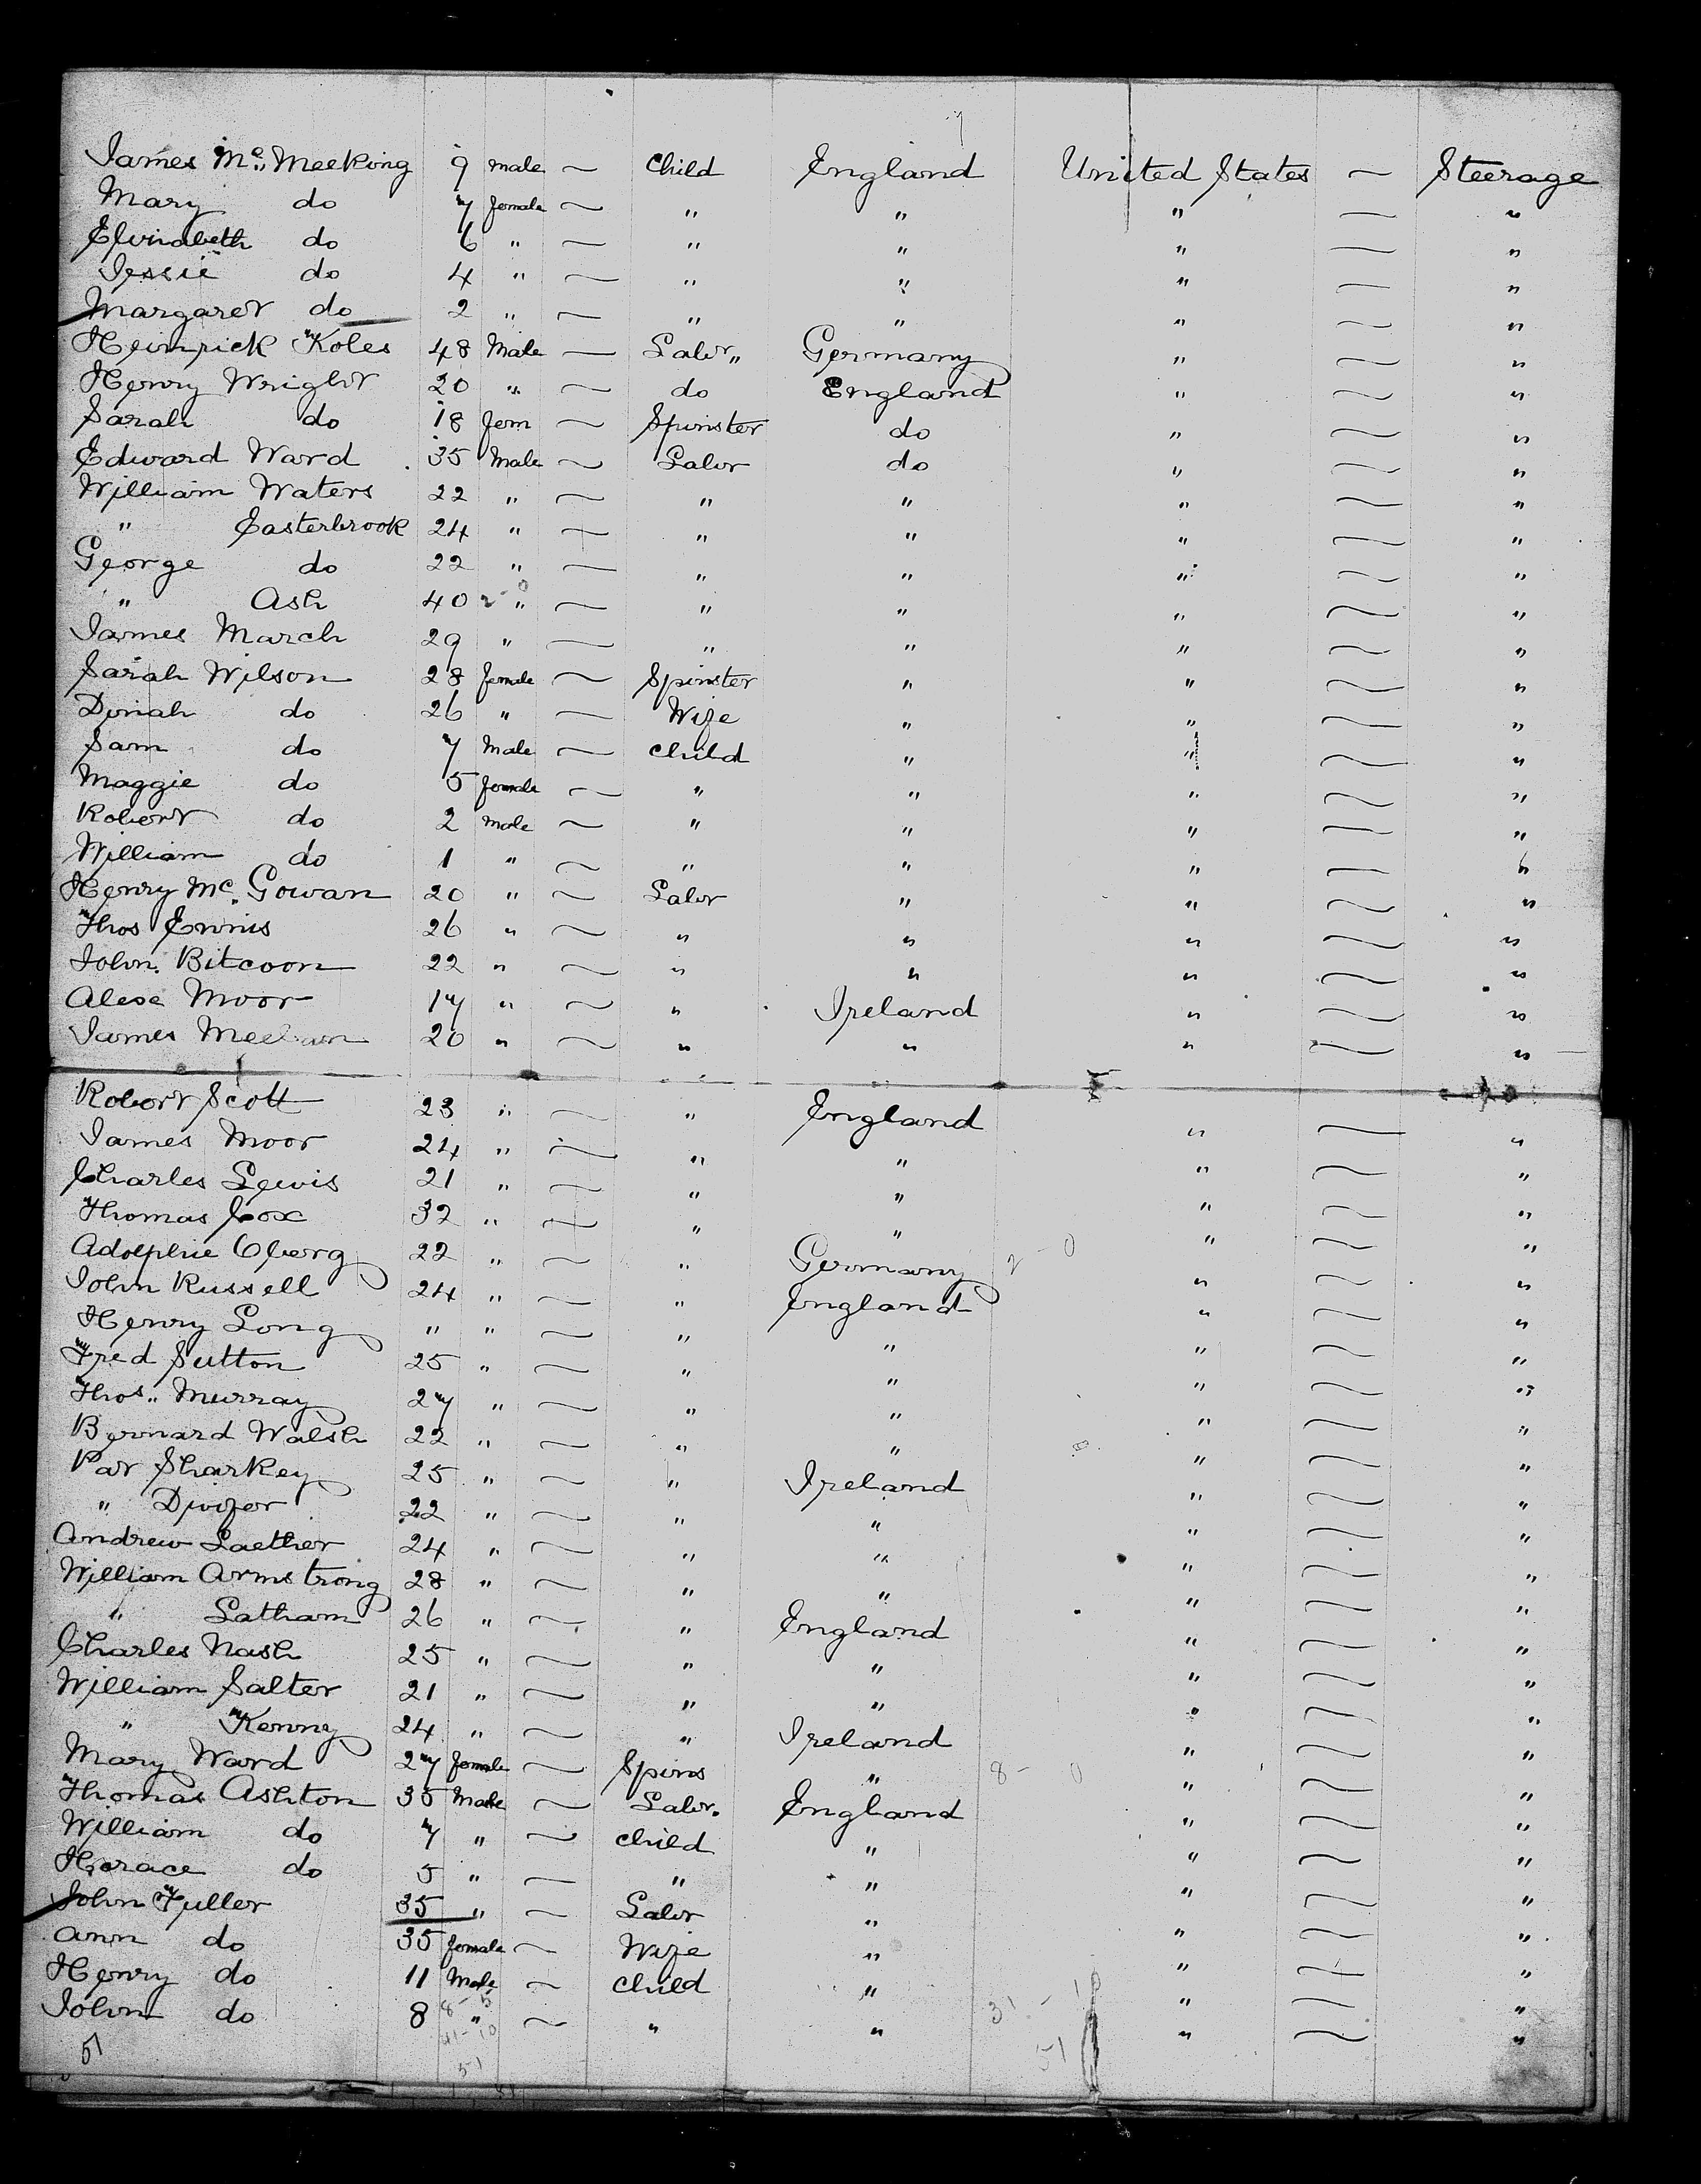 James Mc Meeking 9 male — Child England United States — Steerage
Mary do 7 female — " " " — "
Elizabeth do 6 " — " " " — "
Jessie do 4 " — " " " — "
Margaret do 2 " — " " " — "
Heinrick Koles 48 Male — Labr " Germany " — "
Henry Wright 20 " — do England " — "
Sarah do 18 fem — Spinster do " — "
Edward Ward 35 Male — Labr do " — "
William Waters 22 " — " " " — "
" Easterbrook 24 " — " " " — "
George do 22 " — " " " — "
" Ash 40 " — " " " — "
James March 29 " — " " " — "
Sarah Wilson 28 female — Spinster " " — "
Dinah do 26 " — Wife " " — "
Sam do 7 Male — child " " — "
Maggie do 5 female — " " " — "
Robert do 2 male — " " " — "
William do 1 " — " " " — "
Henry Mc Gowan 20 " — Labr " " — "
Thos Ennis 26 " — " " " — "
John Bitcoon 22 " — " " " — "
Alex Moor 17 " — " Ireland " — "
James Meehan 20 " — " " " — "
Robert Scott 23 " — " England " — "
James Moor 24 " — " " " — "
Charles Lewis 21 " — " " " — "
Thomas Cox 32 " — " " " — "
Adolphie Oberg 22 " — " Germany 2 - 0 " — "
John Russell 24 " — " England " — "
Henry Long " " — " " " — "
Fred Sutton 25 " — " " " — "
Thos. Murray 27 " — " " " — "
Bernard Walsh 22 " — " " " — "
Pat Sharkey 25 " — " Ireland " — "
" Diviger 22 " — " " " — "
Andrew Laether 24 " — " " " — "
William Armstrong 28 " — " " " — "
" Latham 26 " — " England " — "
Charles Nash 25 " — " " " — "
William Salter 21 " — " " " — "
" Kenny 24 " — " Ireland " — "
Mary Ward 27 female — Spins " 8 - 0 " — "
Thomas Ashton 35 Male — Labr. England " — "
William do 7 " — child " " — "
Horace do 5 " — " " " — "
John Fuller 35 " — Labr " " — "
Ann do 35 female — Wife " " — "
Henry do 11 Male — child " " — "
John do 8 " — " " 31 - 10 " — "
51 41-10 51
51